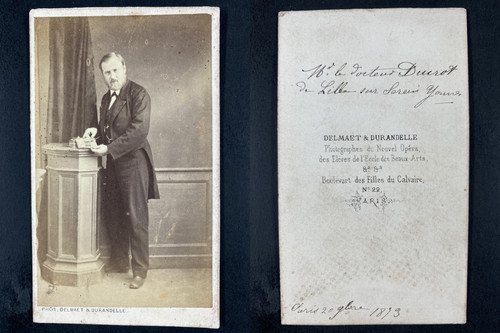 PHOT. DELMAET & DURANDELLE.
Mr le docteur
de Lille sur Serein Yonne
DELMAËT & DURANDELLE
Photographes du Nouvel Opéra,
des Elèves de l'Ecole des Beaux-Arts,
&ª &ª
Boulevart des Filles du Calvaire,
Nº 22.
PARIS
Paris 20 1873